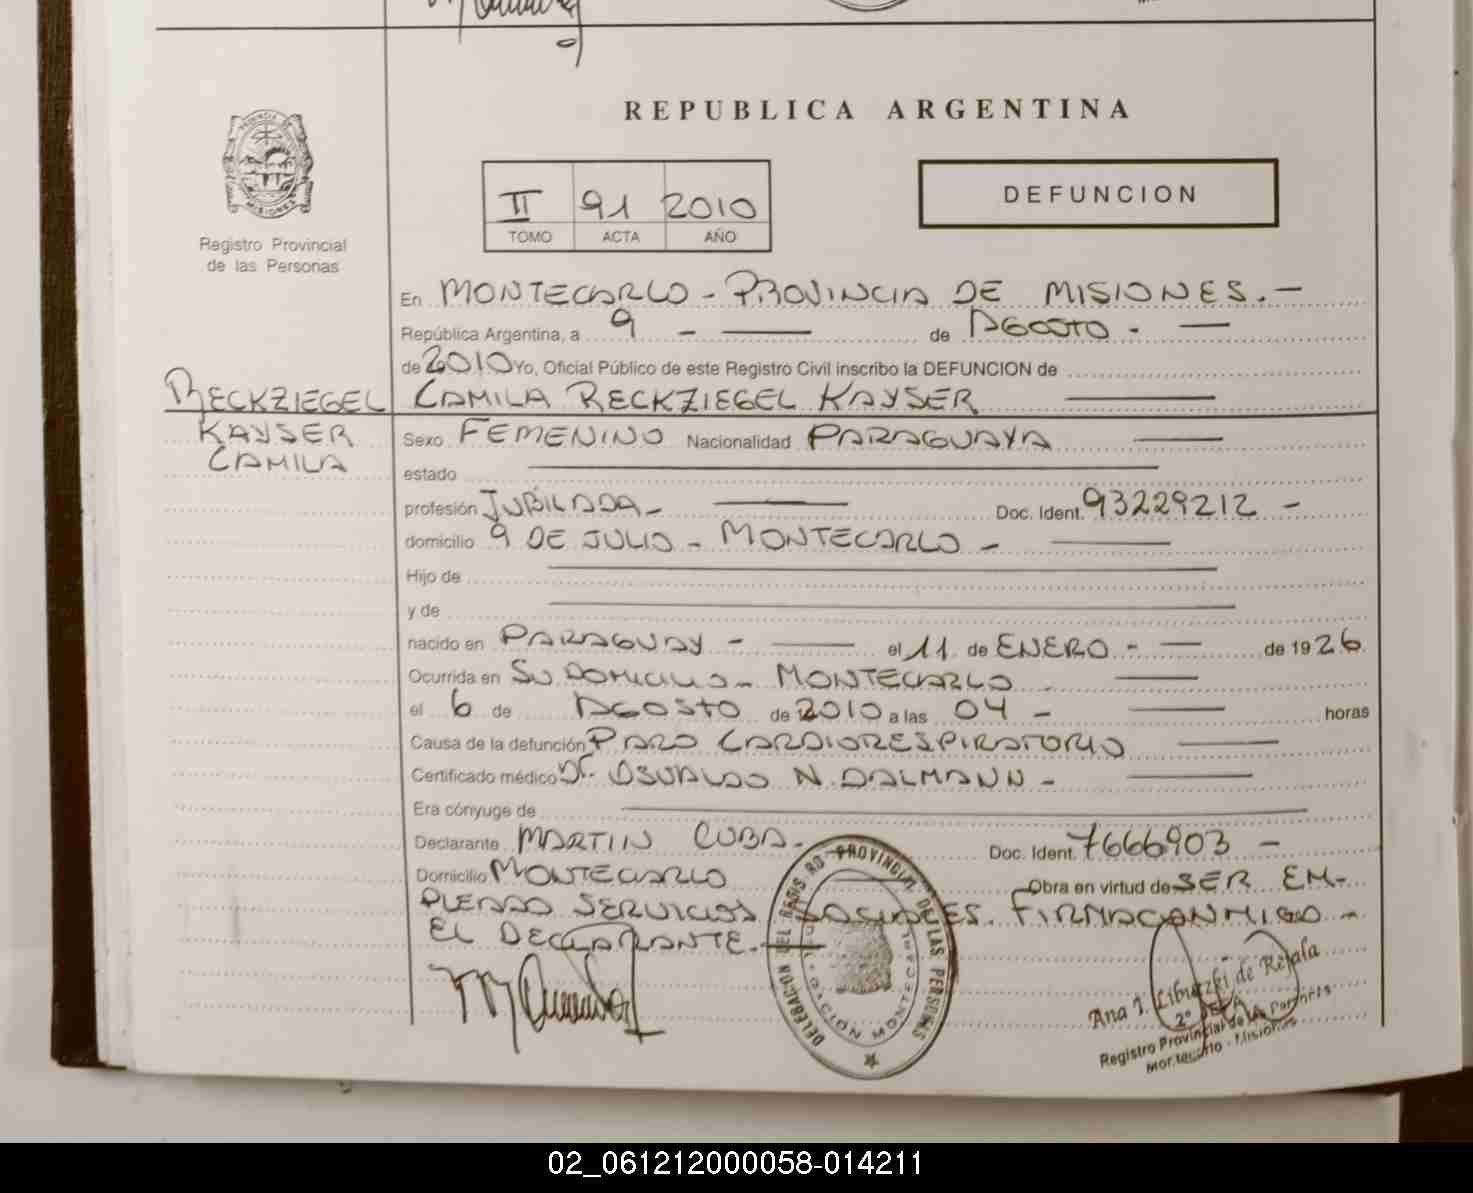 REPUBLICA ARGENTINA
PROVINCIA DE MISIONES
Registro Provincial
de las Personas
II 91 2010
TOMO ACTA AÑO
DEFUNCION
En MONTECARLO - PROVINCIA DE MISIONES. -
República Argentina, a 9 - de AGOSTO -
de 2010 Yo, Oficial Público de este Registro Civil inscribo la DEFUNCION de
CAMILA RECKZIEGEL KAYSER
RECKZIEGEL
KAYSER
CAMILA
Sexo FEMENINO Nacionalidad PARAGUAYA
estado
profesión JUBILADA - Doc. Ident. 93229212 -
domicilio 9 DE JULIO - MONTECARLO -
Hijo de
y de
nacido en PARAGUAY - el 11 de ENERO - de 1926
Ocurrida en SU DOMICILIO - MONTECARLO
el 6 de AGOSTO de 2010 a las 04 - horas
Causa de la defunción PARO CARDIORESPIRATORIO
Certificado médico Dr. OSVALDO N. DALMANN -
Era cónyuge de
Declarante MARTIN CUBA - Doc. Ident. 7666903 -
Domicilio MONTECARLO Obra en virtud de SER EM-
PLEADO SERVICIOS SOCIALES. FIRMA CONMIGO -
EL DECLARANTE. -
DELEGACIÓN DEL REGISTRO PROVINCIAL DE LAS PERSONAS
DELEGACIÓN MONTECARLO
Ana I. de Rejala
Registro Provincial de las Personas
Montecarlo - Misiones
02_061212000058-014211